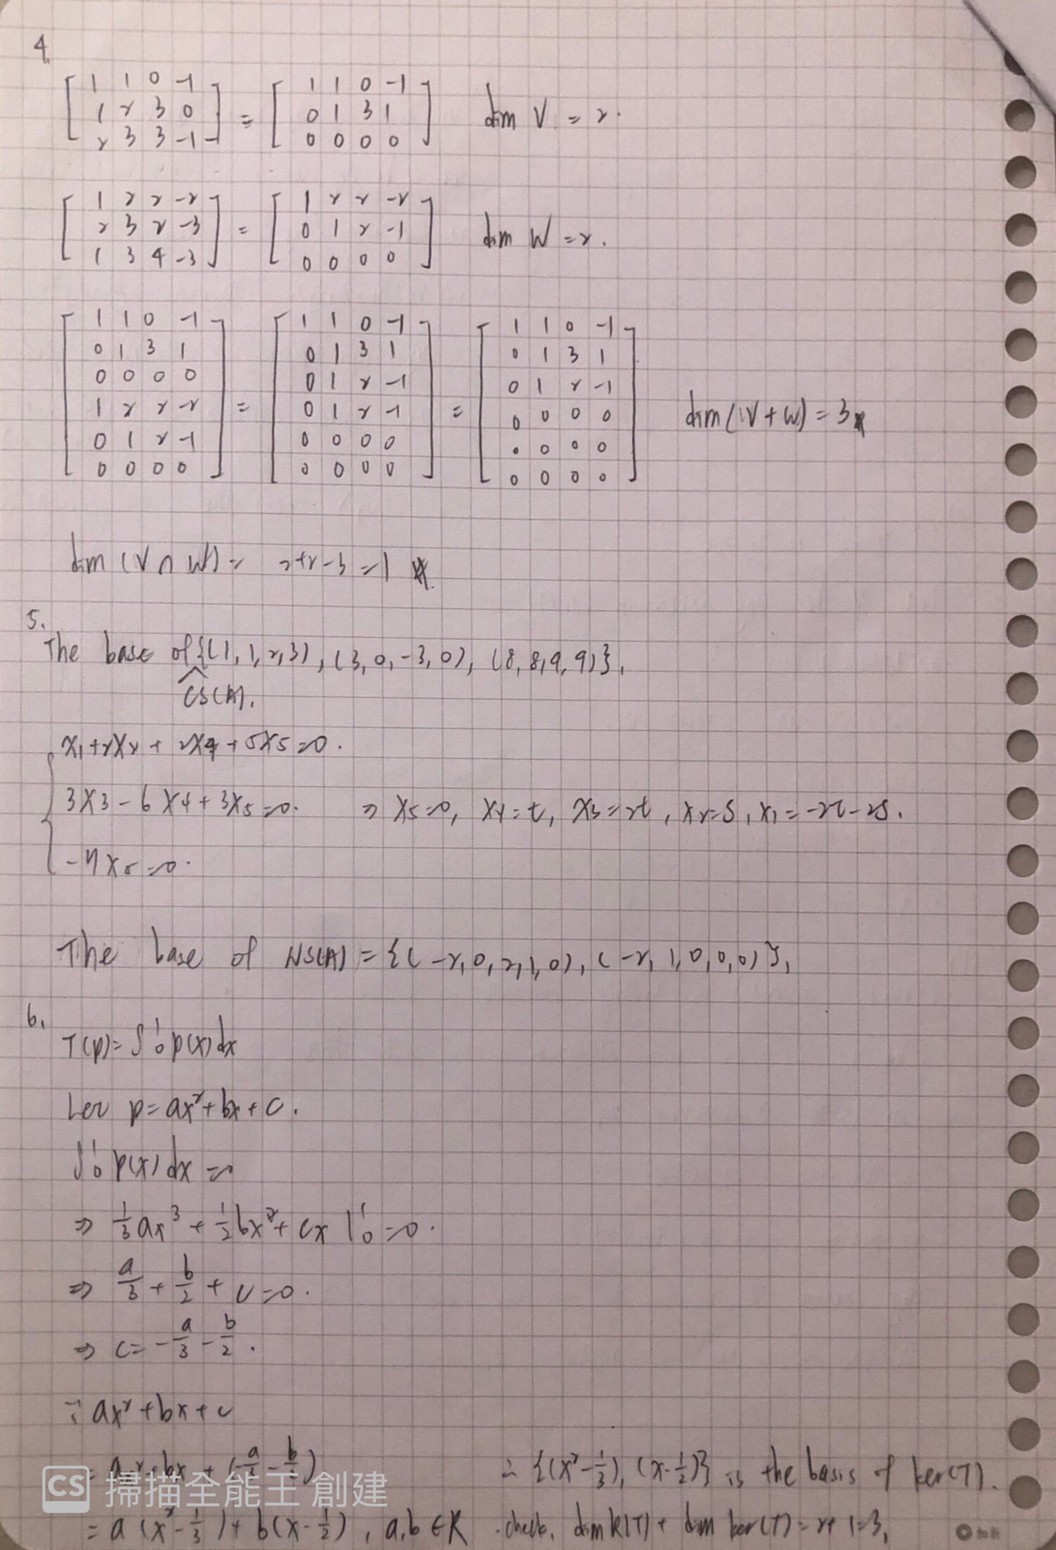 4.
[1 1 0 -1; 1 2 3 0; 2 3 3 -1] = [1 1 0 -1; 0 1 3 1; 0 0 0 0] dim V = 2.
[1 2 2 -2; 2 3 2 -3; 1 3 4 -3] = [1 2 2 -2; 0 1 2 -1; 0 0 0 0] dim W = 2.
[1 1 0 -1; 0 1 3 1; 0 0 0 0; 1 2 2 -2; 0 1 2 -1; 0 0 0 0] = [1 1 0 -1; 0 1 3 1; 0 1 2 -1; 0 1 2 -1; 0 0 0 0; 0 0 0 0] = [1 1 0 -1; 0 1 3 1; 0 1 2 -1; 0 0 0 0; 0 0 0 0; 0 0 0 0] dim (V + W) = 3
dim (V ∩ W) = 2+2-3 = 1
5.
The base of {(1, 1, 2, 3), (3, 0, -3, 0), (8, 8, 9, 9)},
CS(A).
x1 + 2x2 + 2x4 + 5x5 = 0.
3x3 - 6x4 + 3x5 = 0. ⇒ x5 = 0, x4 = t, x3 = 2t, x2 = s, x1 = -2t-2s.
-7x5 = 0.
The base of NS(A) = {(-2, 0, 2, 1, 0), (-2, 1, 0, 0, 0)},
6.
T(p) = ∫₀¹ p(x) dx
Let p = ax² + bx + c.
∫₀¹ p(x) dx = 0
⇒ 1/3 ax³ + 1/2 bx² + cx |₀¹ = 0.
⇒ a/3 + b/2 + c = 0.
⇒ c = -a/3 - b/2.
∵ ax² + bx + c
= ax² + bx + (-a/3 - b/2) ∴ {(x² - 1/3), (x - 1/2)} is the basis of ker(T).
= a (x² - 1/3) + b (x - 1/2), a, b ∈ R check, dim R(T) + dim ker(T) = 2+1=3,
CS 掃描全能王 創建